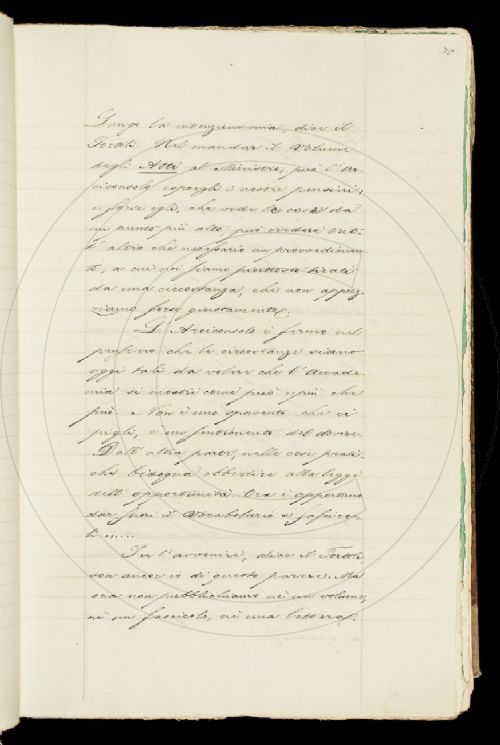 25
Lunge la intenzione mia, dice il
Tocali. Nel mandar il Volume
degli Atti al Ministro, può l'Ar-
ciconsolo esporgli i nostri pensieri;
e forse egli, che vede le cose da
un punto più alto, può credere tutt'
altro che necessario un provvedimen-
to, a cui noi siamo piuttosto tirati
da una circostanza, che non apprez-
ziamo forse giustamente.
L'Arciconsolo è fermo nel
pensiero che le circostanze siano
oggi tali da volere che l'Accade-
mia si mostri come può e più che
può. Non è uno spavento che ci
pigli, è un sentimento del dovere.
Dall'altra parte, nelle cose prati-
che bisogna obbedire alla legge
dell'opportunità. Ora è opportuno
dar fuori il Vocabolario a fascico-
li......
Per l'avvenire, dice il Tortoli,
son ancor io di questo parere. Ma
ora non pubblichiamo nè un volume,
nè un fascicolo, nè una lettera.